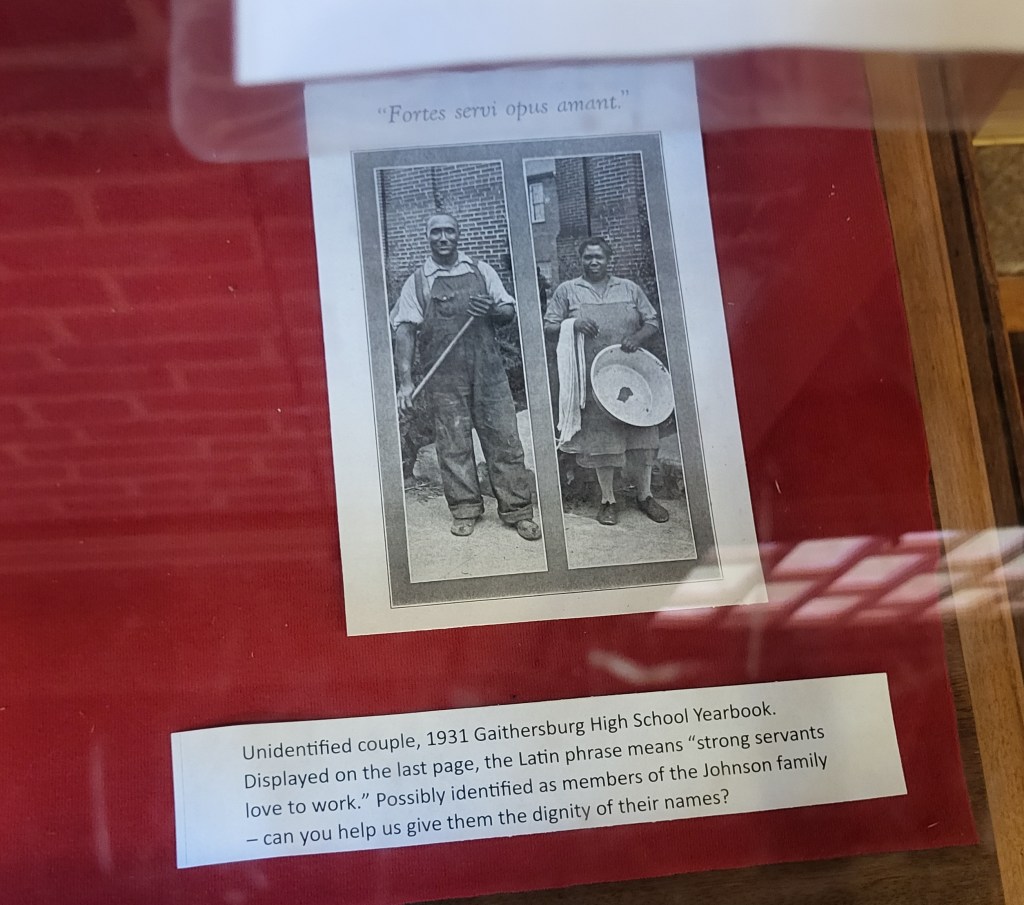 “Fortes servi opus amant.”
Unidentified couple, 1931 Gaithersburg High School Yearbook.
Displayed on the last page, the Latin phrase means “strong servants
love to work.” Possibly identified as members of the Johnson family
– can you help us give them the dignity of their names?